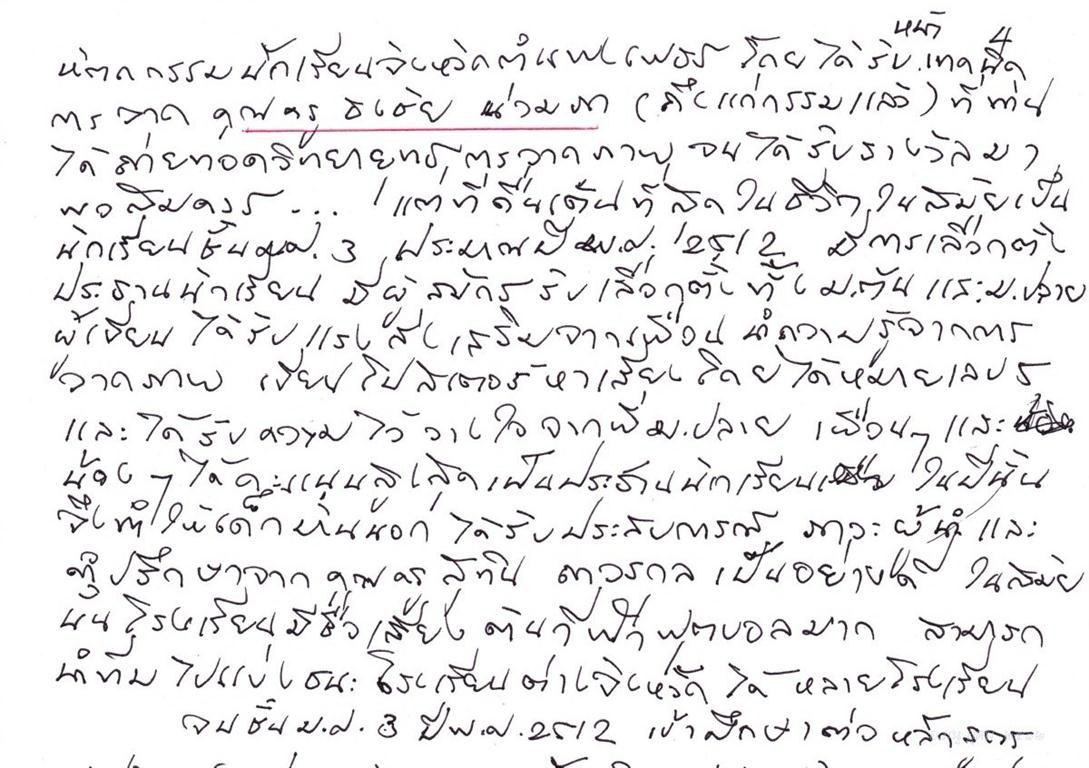 หน้า 4
หัตถกรรมนักเรียนจังหวัดกำแพงเพชร โดยได้รับ
การวาด คุณครู ธงชัย น่วมภา (ถึงแก่กรรมแล้ว) ที่ท่าน
ได้ถ่ายทอดวิทยายุทธ การวาดภาพ จนได้รับรางวัลมา
พอสมควร ... แต่ที่ตื่นเต้นที่สุดในชีวิต ในสมัยเป็น
นักเรียนชั้น ม.ศ. 3 ประมาณปี พ.ศ. 2512 มีการเลือกตั้ง
ประธานนักเรียน มีผู้สมัครรับเลือกตั้งทั้ง ม.ต้น และ ม.ปลาย
ผู้เขียน ได้รับแรงส่งเสริมจากเพื่อน นำความรู้จากการ
วาดภาพ เขียนโปสเตอร์หาเสียง โดยได้หมายเลข 5
และได้รับความไว้วางใจจากพี่ ม.ปลาย เพื่อนๆ และ
น้องๆ ได้คะแนนสูงสุดเป็นประธานนักเรียน ในปีนั้น
จึงทำให้เด็กบ้านนอก ได้รับประสบการณ์ ภาวะผู้นำ และ
ที่ปรึกษาจาก คุณครู สุทิน ถาวรกุล เป็นอย่างดี ในสมัย
นั้นโรงเรียนมีชื่อเสียงด้านกีฬาฟุตบอลมาก สามารถ
นำทีมไปแข่งชนะ โรงเรียนต่างจังหวัด ได้หลายโรงเรียน
จบชั้น ม.ศ. 3 ปี พ.ศ. 2512 เข้าศึกษาต่อ หลักสูตร